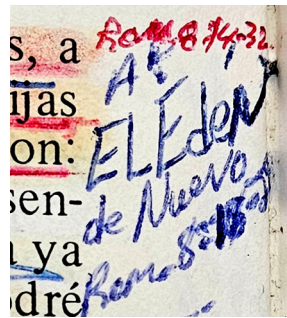 s, a
ijas
on:
sen-
a ya
odré
Rom. 8 14-32
EL Eden
de Nuevo
Rom. 8:18